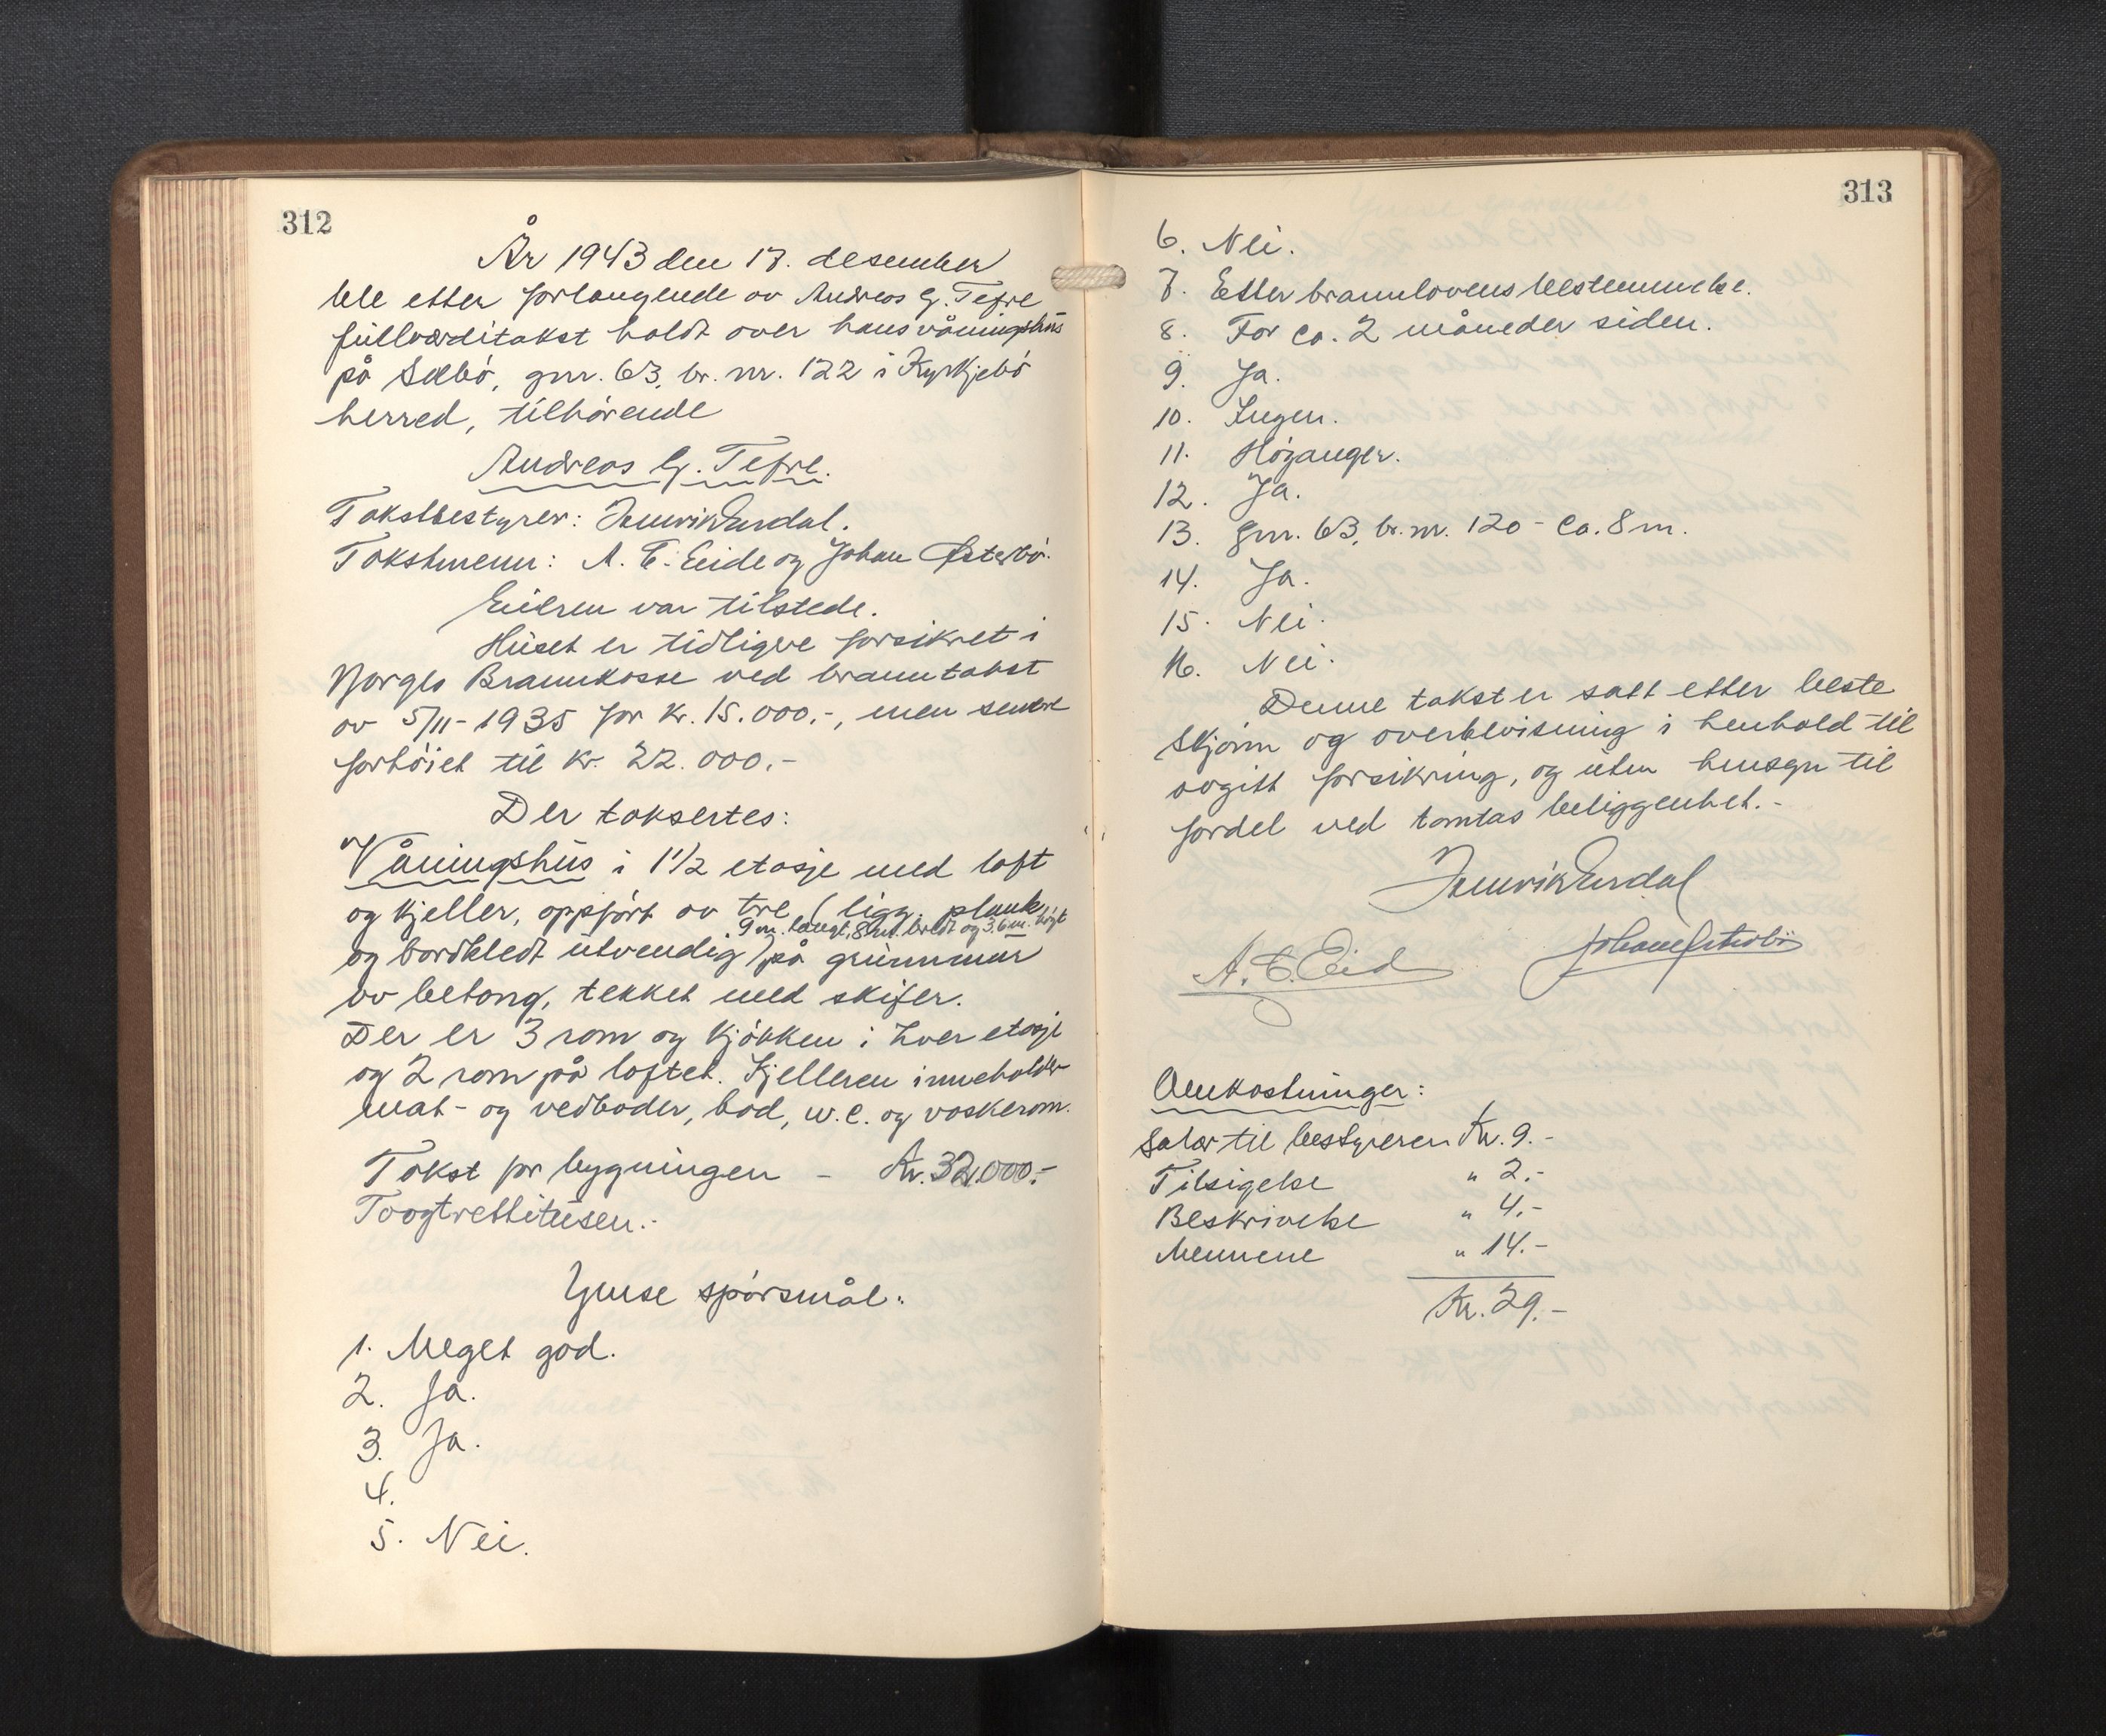 312
År 1943 den 17. desember
ble etter forlangende av Andreas G. Tefre
fullverditakst holdt over hans våningshus
på Sæbö, gnr. 63, br. nr. 122 i Kyrkjebö
herred, tilhörende
Andreas G. Tefre.
Takstbestyrer:
Takstmenn: A. E. Eide og Johan Österbö.
Eieren var tilstede.
Huset er tidligere forsikret i
Norges Brannkasse ved branntakst
av 5/11-1935 for kr. 15.000.-, men senere
forhöiet til kr. 22.000.-
Der taksertes:
Våningshus i 1 1/2 etasje med loft
og kjeller, oppfört av tre (ligg. plank
9 m. langt, 8 m. bredt og 3.6 m. högt
og bordkledt utvendig) på grunnmur
av betong, tekket med skifer.
Der er 3 rom og kjökken i hver etasje
og 2 rom på loftet. Kjelleren inneholder
mat- og vedboder, bad, w.c. og vaskerom.
Takst for bygningen - Kr. 32.000.-
Toogtrettitusen.-
Ymse spörsmål:
1. Meget god.
2. Ja.
3. Ja.
4.
5. Nei.
313
6. Nei.
7. Etter brannlovens bestemmelse.
8. For ca. 2 måneder siden.
9. Ja.
10. Ingen.
11. Höyanger.
12. Ja.
13. gnr. 63, br. nr. 120 - ca. 8 m.
14. Ja.
15. Nei.
16. Nei.
Denne takst er satt etter beste
skjönn og overbevisning i henhold til
avgitt forsikring, og uten hensyn til
fordel ved tomtas beliggenhet.-
A. E. Eide
Johan Österbö
Omkostninger:
Salær til bestyreren Kr. 9.-
Tilsigelse " 2.-
Beskrivelse " 4.-
Mennene " 14.-
Kr. 29.-